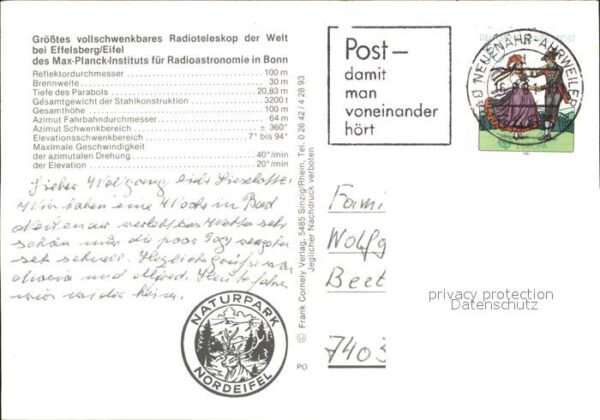 Größtes vollschwenkbares Radioteleskop der Welt
bei Effelsberg/Eifel
des Max-Planck-Instituts für Radioastronomie in Bonn
Reflektordurchmesser 100 m
Brennweite 30 m
Tiefe des Parabols 20,83 m
Gesamtgewicht der Stahlkonstruktion 3200 t
Gesamthöhe 100 m
Azimut Fahrbahndurchmesser 64 m
Azimut Schwenkbereich ± 360°
Elevationsschwenkbereich 7° bis 94°
Maximale Geschwindigkeit
der azimutalen Drehung 40°/min
der Elevation 20°/min
Lieber Wolfgang liebe Lieselotte
Wir haben eine Woche in Bad
Neuenahr verlebt das Wetter sehr
schön nur die paar Tage
sehr schnell. Herzliche Grüße von
Maria und Alfred. Heute fahren
wir wieder heim.
NATURPARK
NORDEIFEL
© Frank Cornely Verlag, 5485 Sinzig/Rhein, Tel. 0 26 42 / 4 28 93
Jeglicher Nachdruck verboten
PO
Post–
damit
man
voneinander
hört
NEUENAHR-AHRWEILER
EUROPA
Fami
Wolfg
Beet
7403
privacy protection
Datenschutz